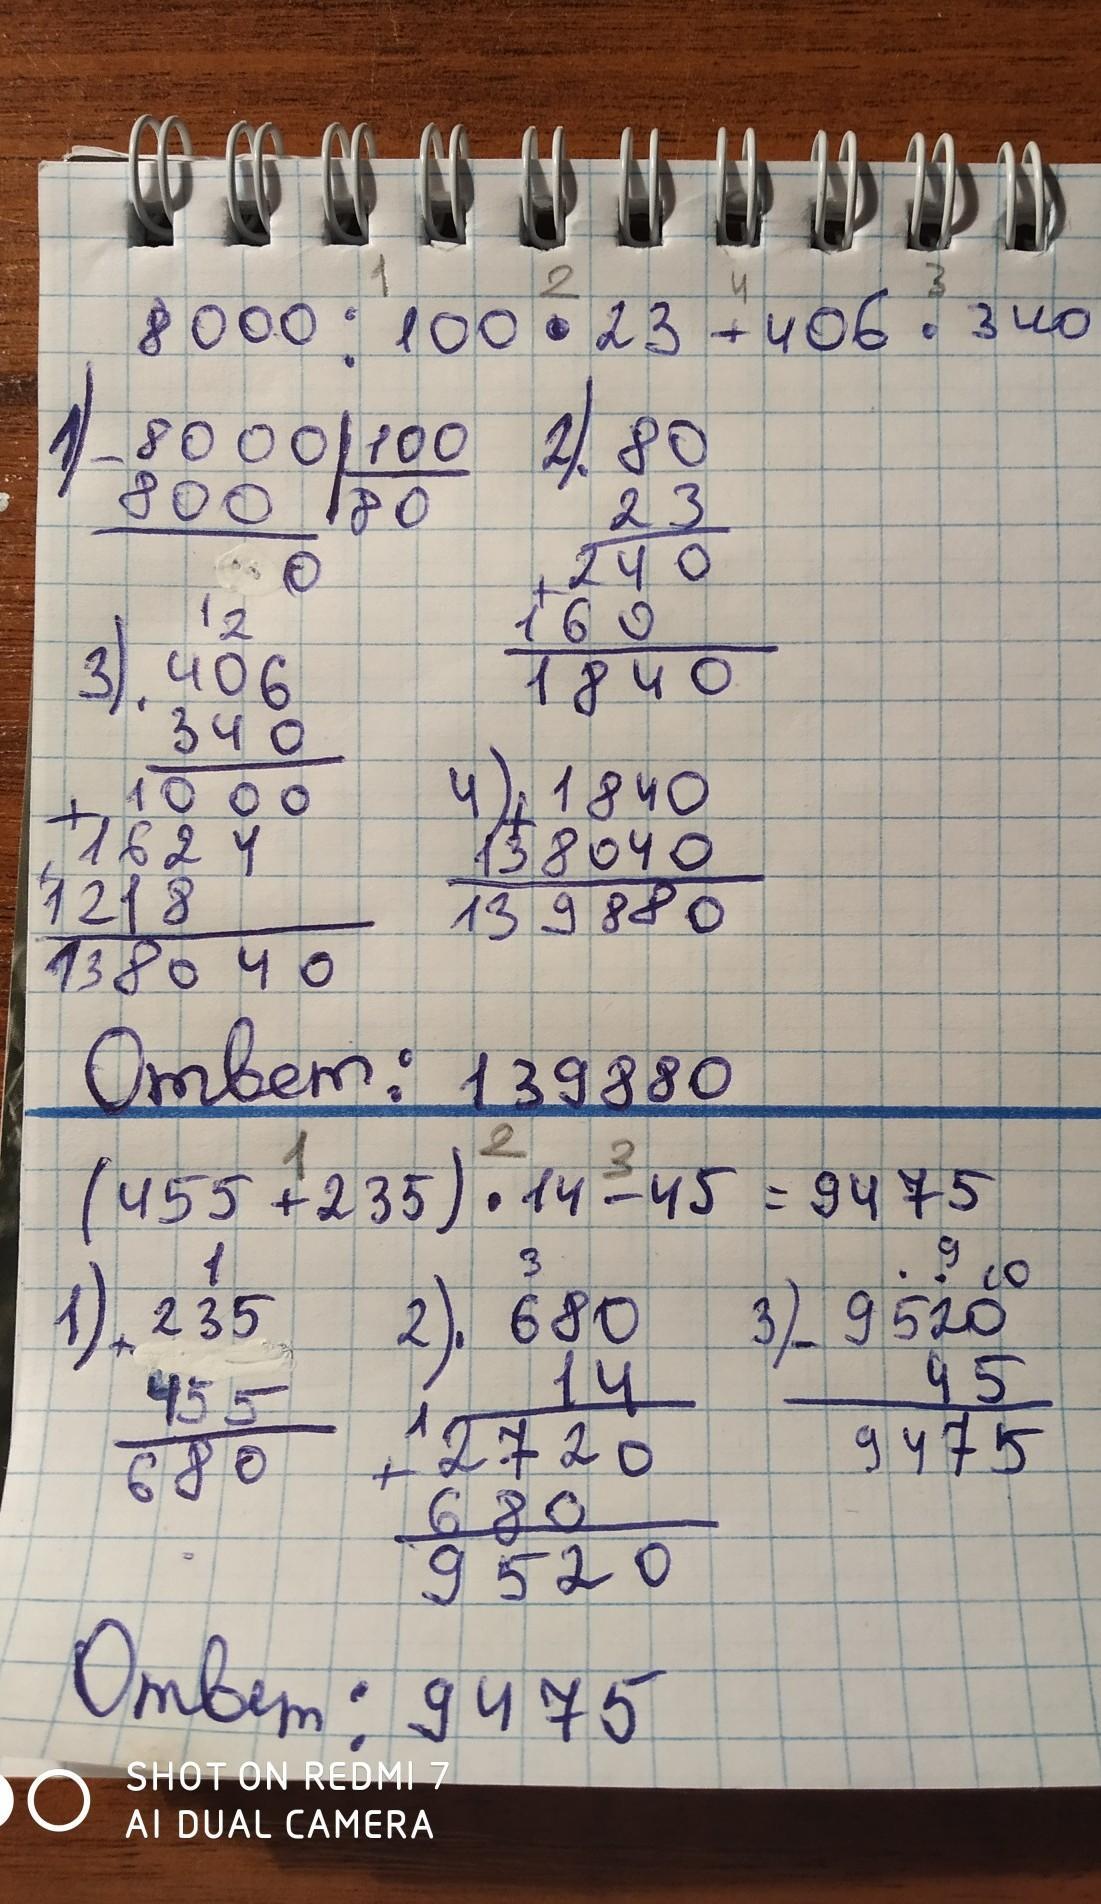 1 2 4 3
8000 : 100 • 23 + 406 • 340
1) - 8000 | 100
800 | 80
0
2) • 80
23
+ 240
160
1840
1 2
3) • 406
340
+ 1000
1624
1218
138040
4) + 1840
138040
139880
Ответ: 139880
1 2 3
(455 + 235) • 14 - 45 = 9475
1
1) + 235
455
680
3
2) • 680
14
1
+ 2720
680
9520
. . 9 10
3) - 9520
45
9475
Ответ: 9475
SHOT ON REDMI 7
AI DUAL CAMERA